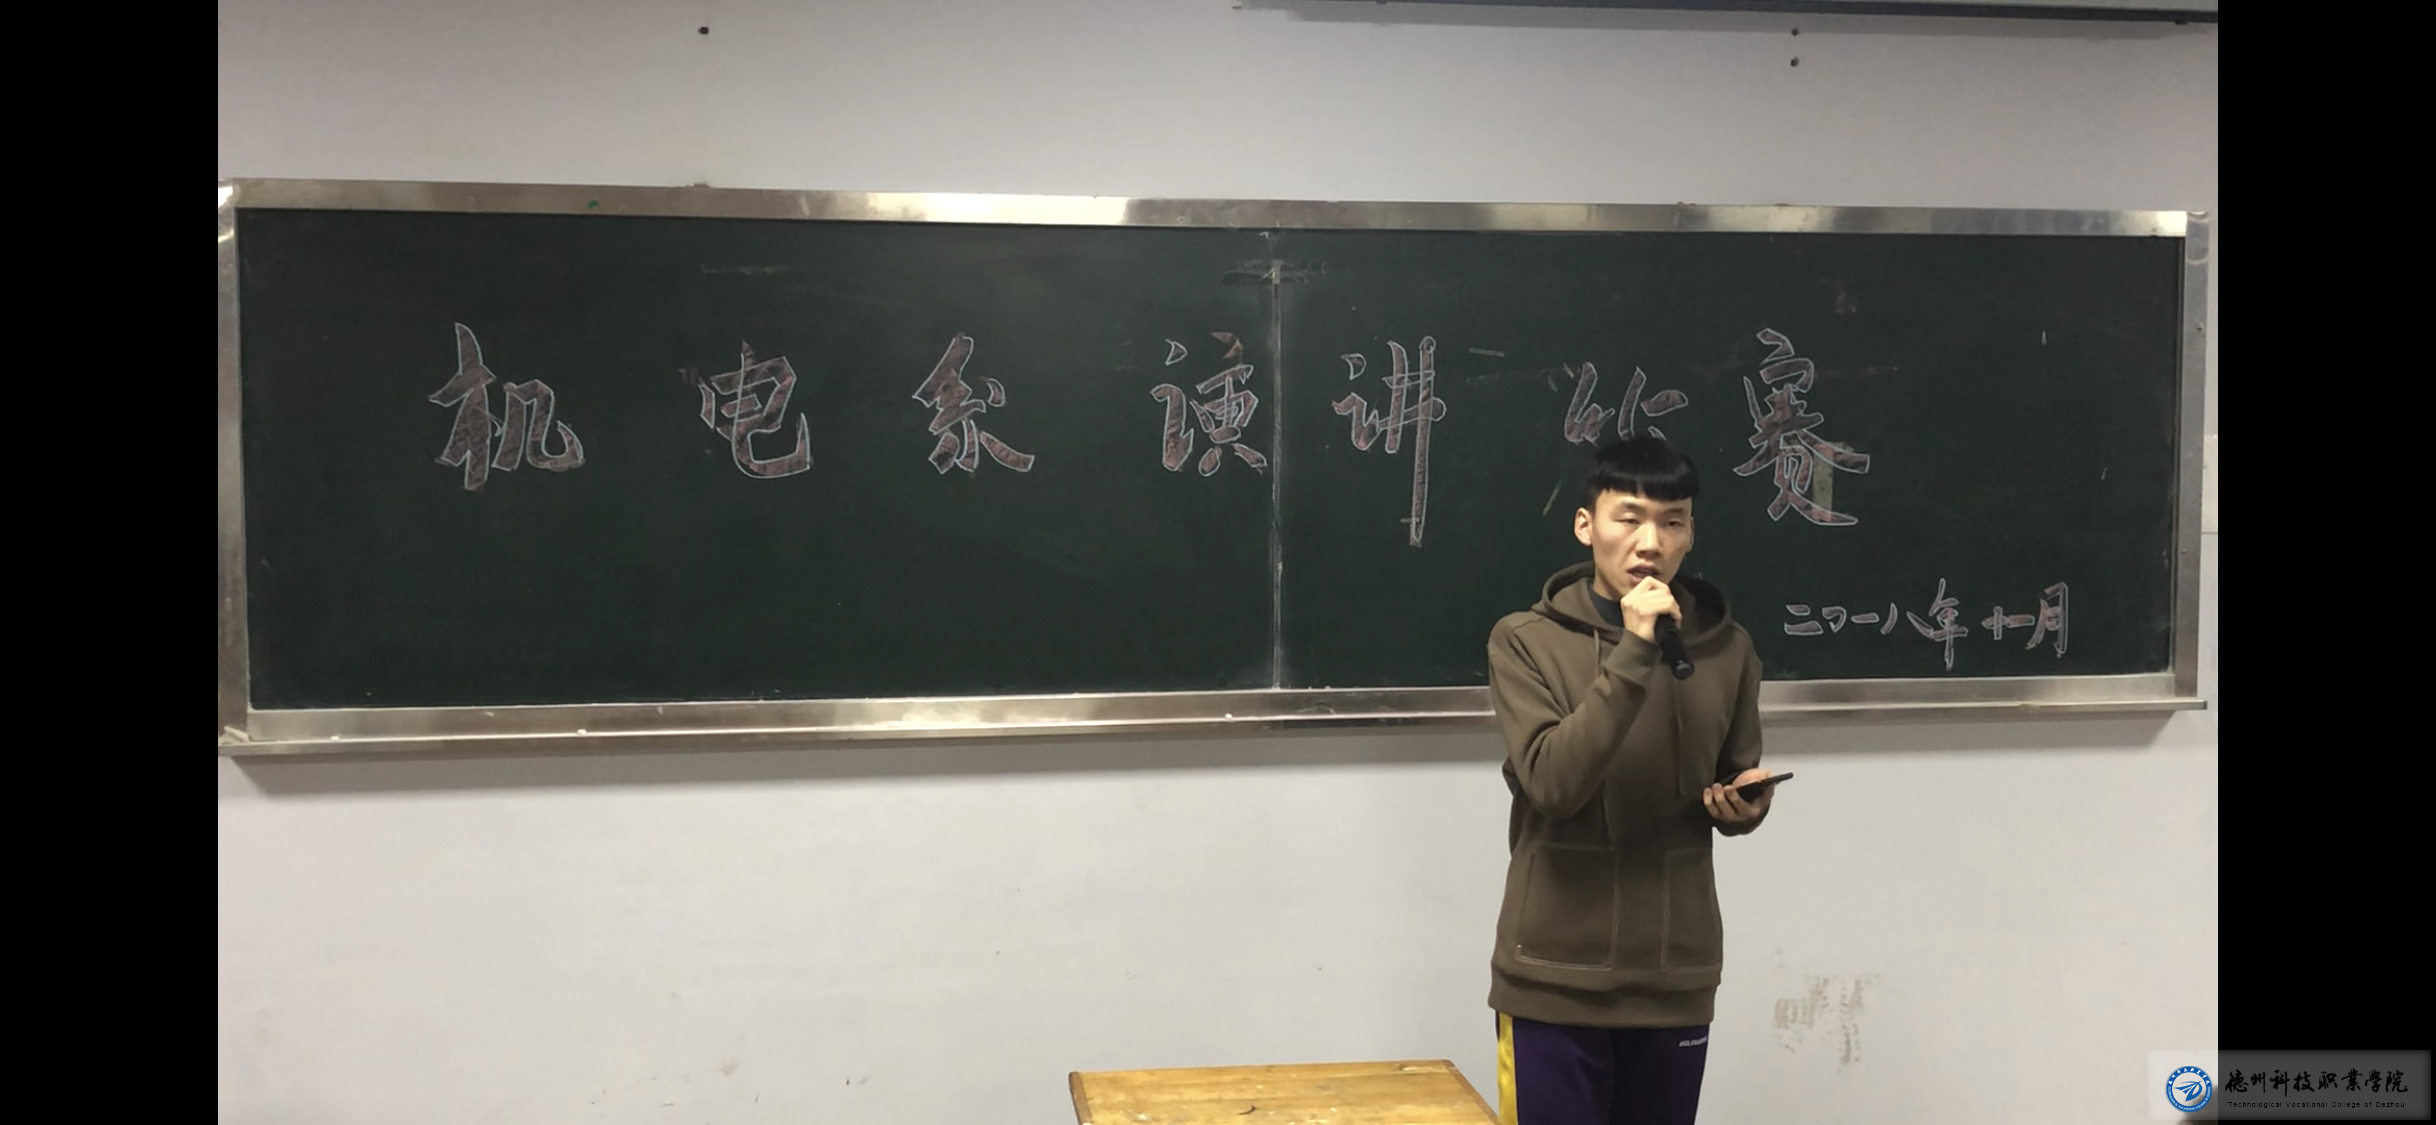 机电系演讲比赛
二〇一八年十一月
德州科技职业学院
Technological Vocational College of Dezhou